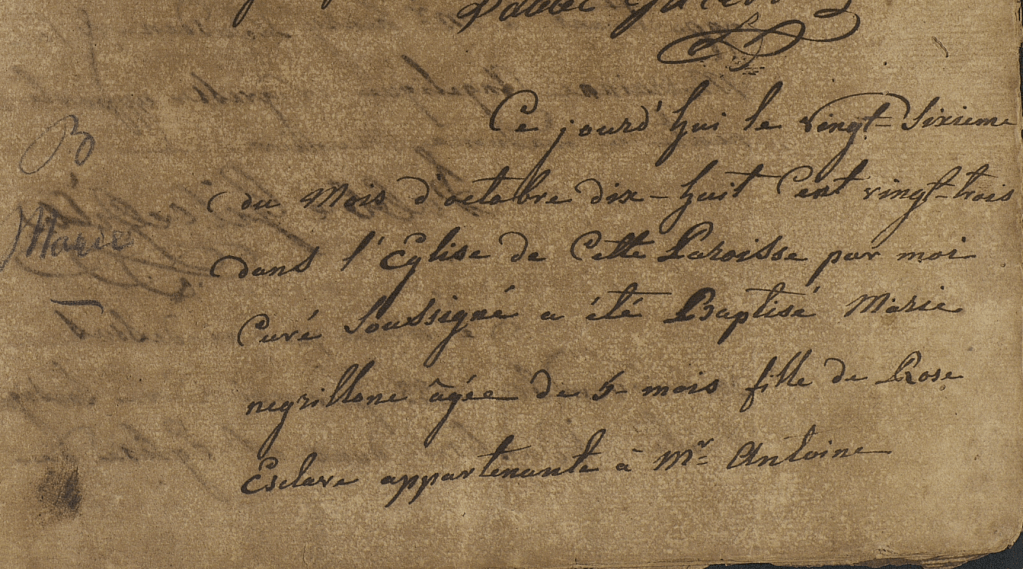 Ce jourd'hui le vingt Sixieme
B
du Mois d'octobre dix-huit Cent vingt-trois
Marie
dans l'Eglise de Cette Paroisse par moi
Curé Soussigné a été Baptisé Marie
negrillone âgée de 5 mois fille de Rose
Esclave appartenante à Mr Antoine